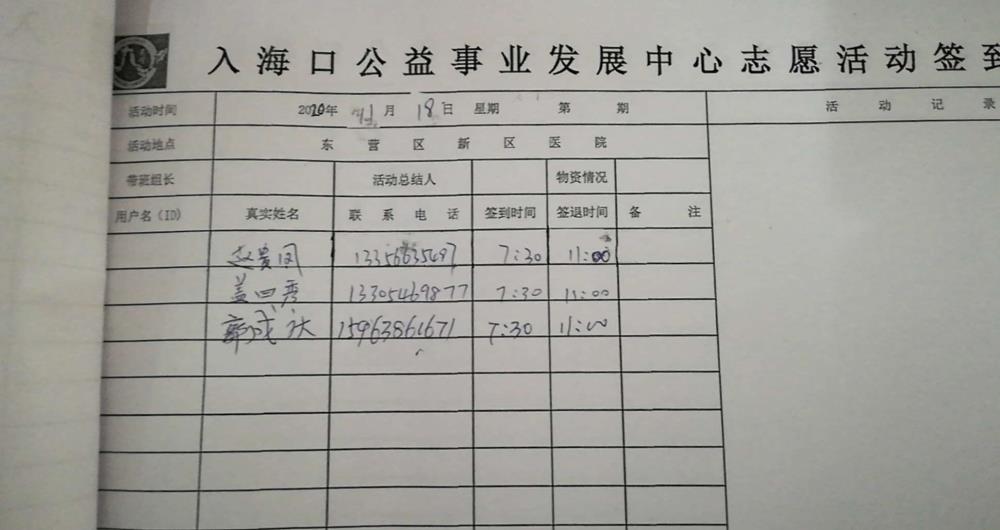 入海口公益事业发展中心志愿活动签到
活动时间 2020年 11月 18日 星期 第 期 活动记录
活动地点 东营区新区医院
带班组长 活动总结人 物资情况
用户名(ID) 真实姓名 联系电话 签到时间 签退时间 备注
赵贵同 13356635497 7:30 11:00
盖四秀 13305469877 7:30 11:00
15963861671 7:30 11:00